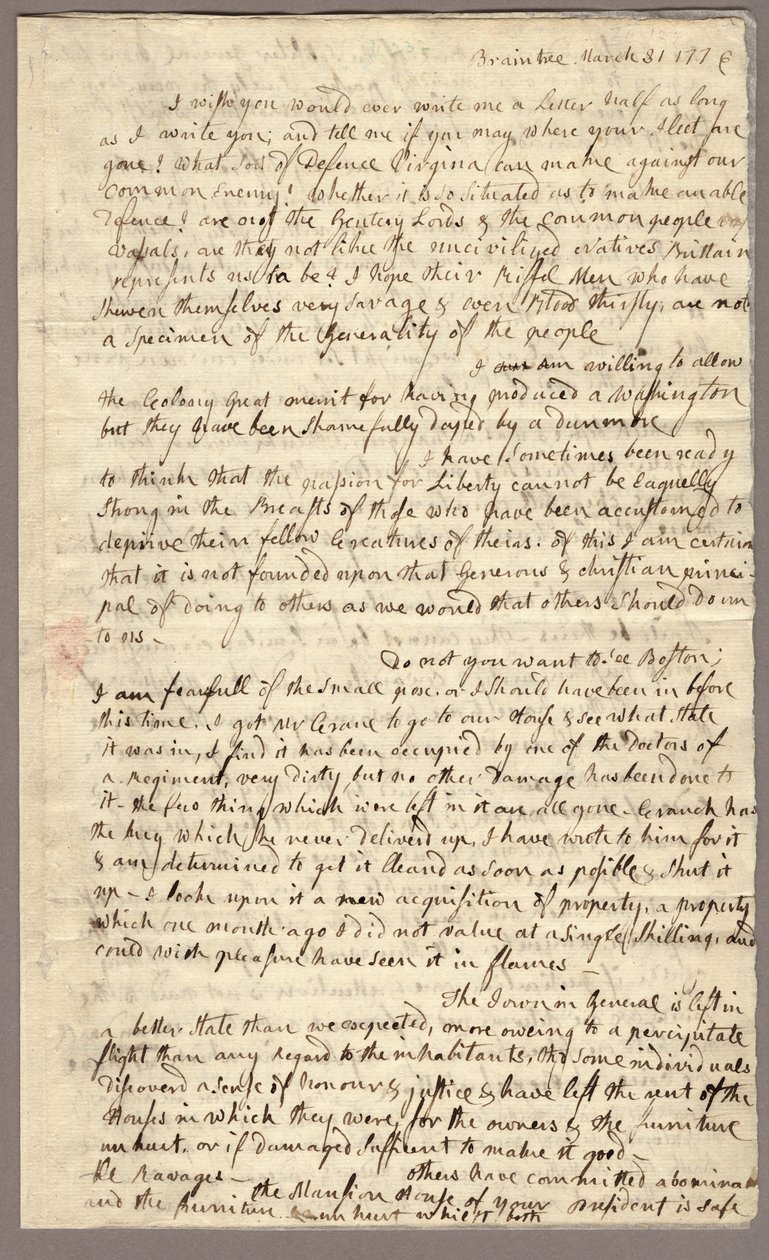 Braintree March 31 1776
I wish you would ever write me a Letter half as long
as I write you; and tell me if you may where your Fleet are
gone? What sort of Defence Virginia can make against our
common Enemy? Whether it is so situated as to make an able
Defence? are not the Gentery Lords & the common people
vassals, are they not like the uncivilized Natives Brittain
represents us to be? I hope their Riffel Men who have
shewen themselves very savage & even Blood thirsty; are not
a specimen of the Generality of the people
I am willing to allow
the Colony great merrit for having produced a Washington
but they have been shamefully duped by a Dunmore
I have sometimes been ready
to think that the passion for Liberty cannot be Eaquelly
strong in the Breasts of those who have been accustomed to
deprive their fellow Creatures of theirs. of this I am certain
that it is not founded upon that generous & christian princi-
pal of doing to others as we would that others should do un
to us -
Do not you want to see Boston;
I am fearfull of the small pox, or I should have been in before
this time. I got Mr Crane to go to our House & see what state
it was in, I find it has been occupied by one of the Doctors of
a Regiment, very dirty, but no other damage has been done to
it - the few things which were left in it are all gone - Cranch has
the key which he never deliverd up, I have wrote to him for it
& am determined to get it cleand as soon as posible & shut it
up - I look upon it a new acquisition of property, a property
which one month ago I did not value at a single Shilling, and
could with pleasure have seen it in flames -
The Town in General is left in
a better state than we expected, more oweing to a percipitate
flight than any Regard to the inhabitants, tho some individuals
discoverd a sense of honour & justice & have left the rent of the
Houses in which they were, for the owners & the furniture
unhurt, or if damaged sufficent to make it good -
others have committed abomina
ble Ravages -
the Mansion House of your President is safe
and the furniture unhurt whilst both